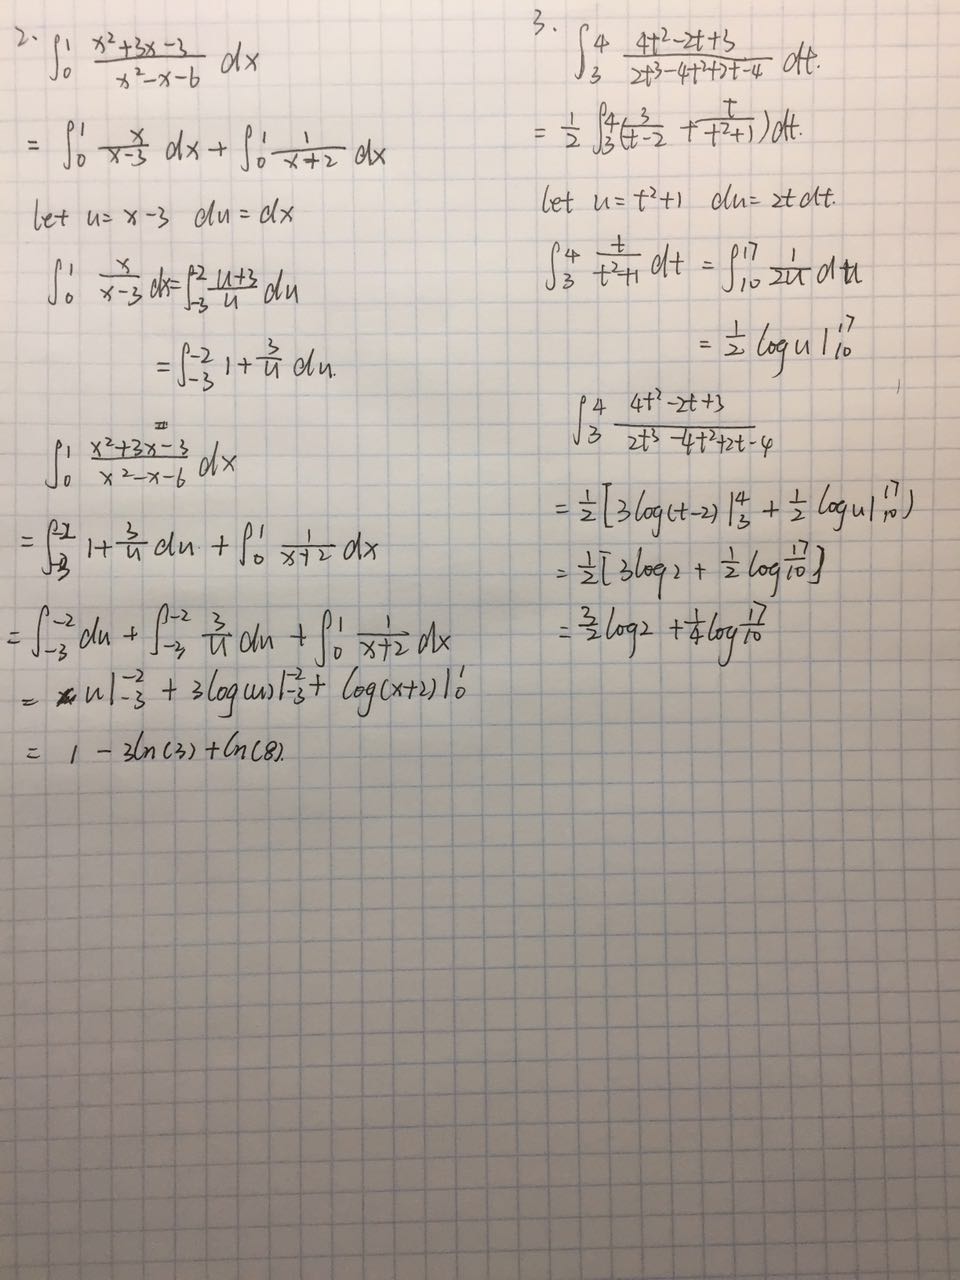 2. ∫₀¹ (x²+3x-3)/(x²-x-6) dx
= ∫₀¹ x/(x-3) dx + ∫₀¹ 1/(x+2) dx
let u = x-3 du = dx
∫₀¹ x/(x-3) dx = ∫₋₃⁻² (u+3)/u du
= ∫₋₃⁻² 1 + 3/u du.
∫₀¹ (x²+3x-3)/(x²-x-6) dx
= ∫₋₃⁻² 1 + 3/u du + ∫₀¹ 1/(x+2) dx
= ∫₋₃⁻² du + ∫₋₃⁻² 3/u du + ∫₀¹ 1/(x+2) dx
= u|₋₃⁻² + 3log(u)|₋₃⁻² + log(x+2)|₀¹
= 1 - 3ln(3) + ln(8).
3. ∫₃⁴ (4t²-2t+3)/(2t³-4t²+2t-4) dt.
= 1/2 ∫₃⁴ (3/(t-2) + t/(t²+1)) dt.
let u = t²+1 du = 2t dt.
∫₃⁴ t/(t²+1) dt = ∫₁₀¹⁷ 1/(2u) du
= 1/2 log u|₁₀¹⁷
∫₃⁴ (4t²-2t+3)/(2t³-4t²+2t-4)
= 1/2 [3log(t-2)|₃⁴ + 1/2 log u|₁₀¹⁷)
= 1/2 [3log2 + 1/2 log 17/10]
= 3/2 log2 + 1/4 log 17/10